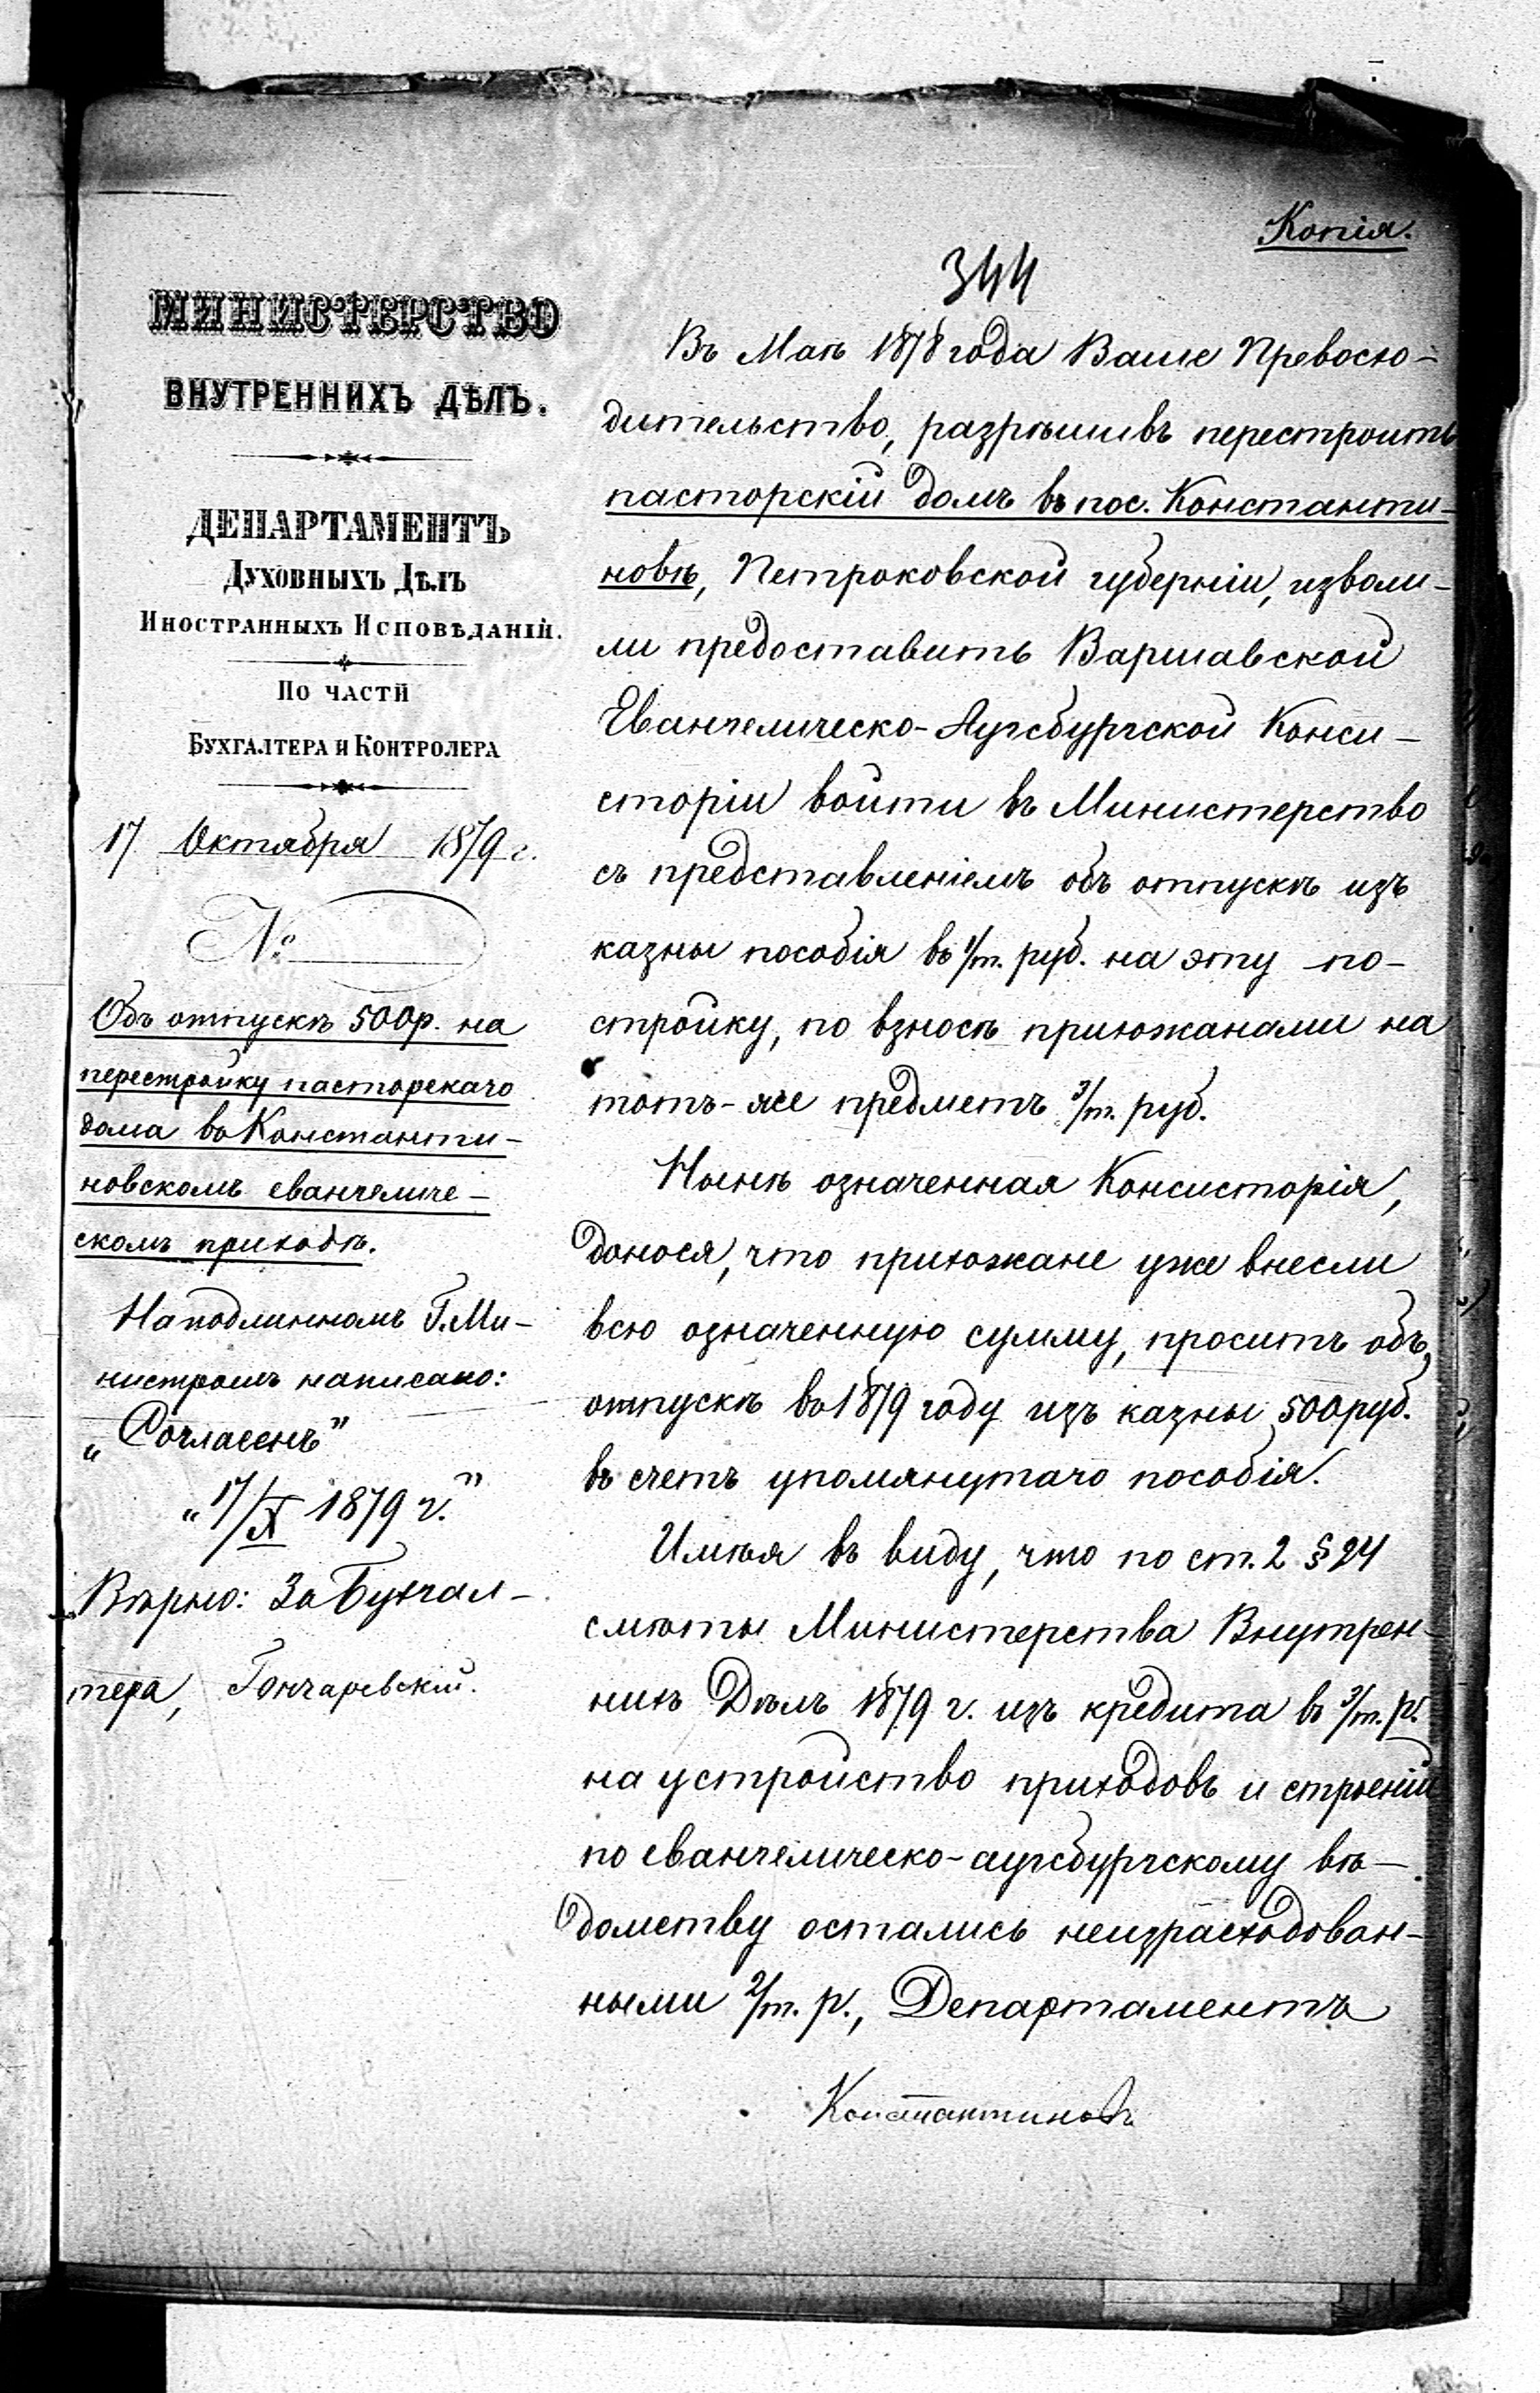 Копія.
344
МИНИСТЕРСТВО
ВНУТРЕННИХЪ ДѢЛЪ.
ДЕПАРТАМЕНТЪ
ДУХОВНЫХЪ ДѢЛЪ
ИНОСТРАННЫХЪ ИСПОВѢДАНІЙ.
ПО ЧАСТИ
БУХГАЛТЕРА И КОНТРОЛЕРА
17 Октября 1879 г.
№
Объ отпускѣ 500р. на
перестройку пасторскаго
дома въ Константи-
новскомъ евангеличе-
скомъ приходѣ.
На подлинномъ Г. Ми-
нистромъ написано:
„Согласенъ"
„17/X 1879 г."
Вѣрно: За Бухгал-
тера, Гончаревскій.
Въ Маѣ 1878 года Ваше Превосхо-
дительство, разрѣшивъ перестроить
пасторскій домъ въ пос. Константи-
новѣ, Петроковской губерніи, изволи-
ли предоставить Варшавской
Евангелическо-Аугсбургской Конси-
сторіи войти въ Министерство
съ представленіемъ объ отпускѣ изъ
казны пособія въ 1/т. руб. на эту по-
стройку, по взносѣ прихожанами на
тотъ-же предметъ 3/т. руб.
Нынѣ означенная Консисторія,
донося, что прихожане уже внесли
всю означенную сумму, проситъ объ
отпускѣ въ 1879 году изъ казны 500 руб.
въ счетъ упомянутаго пособія.
Имѣя въ виду, что по ст. 2 § 24
смѣты Министерства Внутрен-
нихъ Дѣлъ 1879 г. изъ кредита въ 3/т. р.
на устройство приходовъ и строеній
по евангелическо-аугсбургскому вѣ-
домству остались неизрасходован-
ными 2/т. р., Департаментъ
Константиновъ